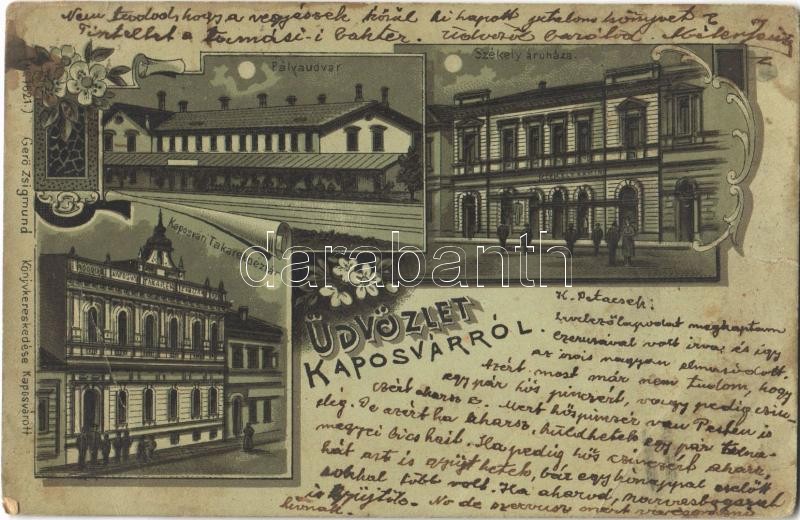 Nem tudod hogy a vegyészek közül ki kapott jutalom könyvet?
a tamási-i bakter. Üdvözöl barátod
Pályaudvar
Székely áruháza.
Gerő Zsigmund Könyvkereskedése Kaposvárott
Kaposvári Takarékpénztár
darabanth
ÜDVÖZLET
KAPOSVÁRRÓL.
K. Patacsek!
levelezőlapodat megkaptam
ezerusával volt írva és így
az írás nagyon elmosódott.
Azért most már nem tudom, hogy
egy pár hős pinczert, vagy pedig
akarsz e. Mert van Pesten is
elég. De azért ha akarsz, küldhetek egy pár tolna-
megyei bicskait. Ha pedig hős akarsz,
hát azt is gyűjthetek, bár egy hónappal ezelőtt
sokkal több volt. Ha akarod, szarvasbogarat
is gyűjtök. No de szervusz mert
hívnak.